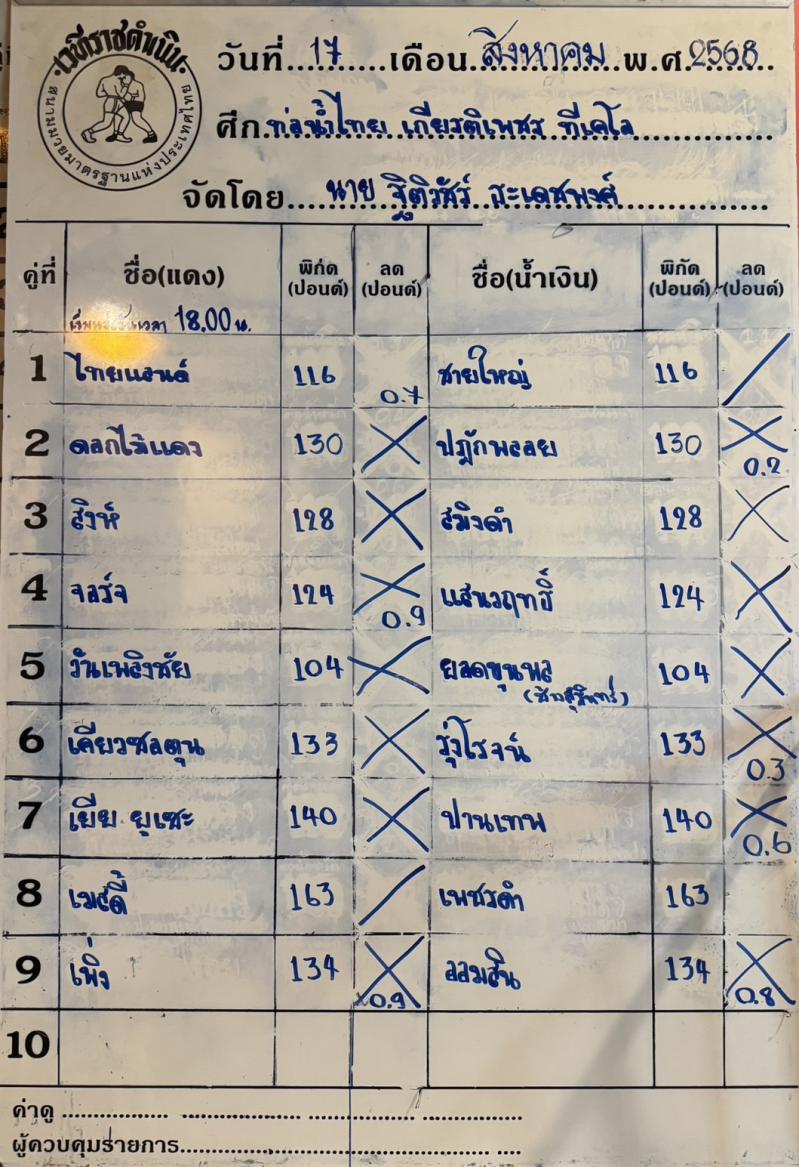 เวทีราชดำเนิน
สนามมวยมาตรฐานแห่งประเทศไทย
วันที่...17......เดือน.สิงหาคม.พ.ศ.2568..
ศึก.ท่อน้ำไทย เกียรติเพชร ทีเคโอ................
จัดโดย....นาย ฐิติวัชร์
คู่ที่ ชื่อ(แดง) พิกัด (ปอนด์) ลด (ปอนด์) ชื่อ(น้ำเงิน) พิกัด (ปอนด์) ลด (ปอนด์)
18.00 น.
1 ไทยแลนด์ 116 0.7 ชายใหญ่ 116
2 ดอกไม้แดง 130 ปฏักพลอย 130 0.2
3 สิงห์ 128 สมิงดำ 128
4 จอร์จ 124 0.9 แสนฤทธิ์ 124
5 วันเพลิงชัย 104 ยอดขุนพล 104
6 เคียวชลตุน 133 รุ่งโรจน์ 133 0.3
7 เยีย ยูเซะ 140 ปานเทพ 140 0.6
8 เมสดี้ 163 เพชรดำ 163
9 เพิ่ง 134 0.9 ออมสิน 134 0.8
10
ค่าดู .................. .................... .................. .................
ผู้ควบคุมรายการ.................................................... ....